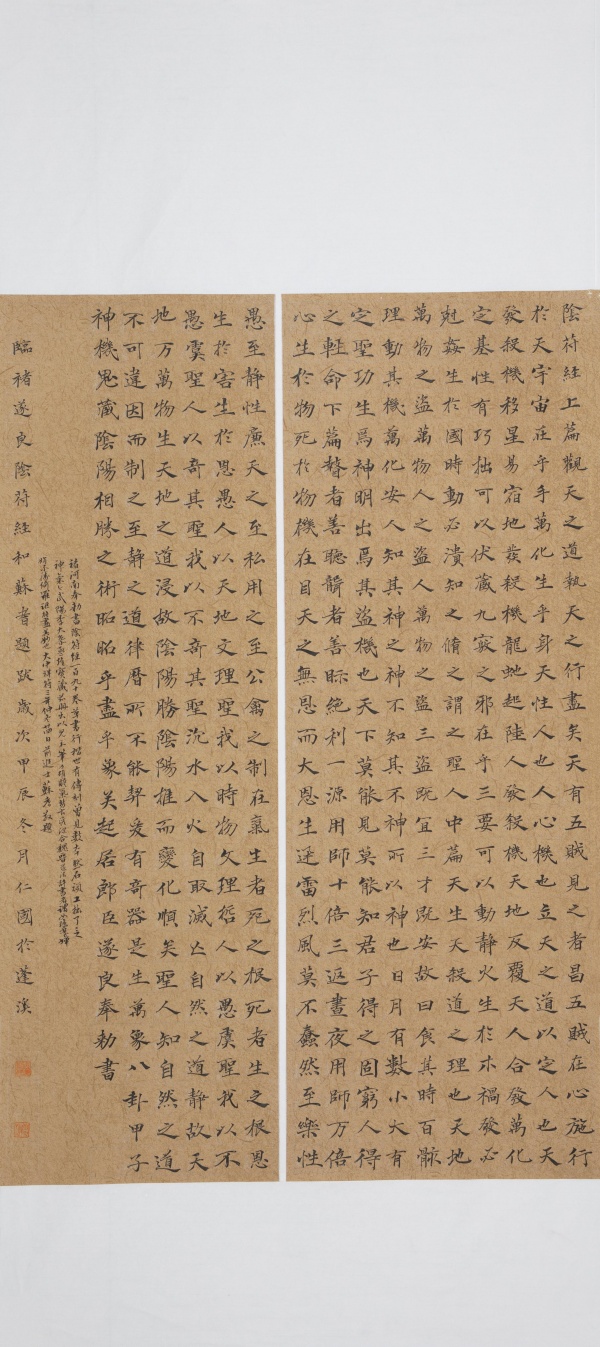 陰符經上篇觀天之道執天之行盡矣天有五賊見之者昌五賊在心施行
於天宇宙在乎手萬化生乎身天性人也人心機也立天之道以定人也天
發殺機移星易宿地發殺機龍虵起陸人發殺機天地反覆天人合發萬化
定基性有巧拙可以伏藏九竅之邪在乎三要可以動靜火生於木禍發必
尅姦生於國時動必潰知之脩之謂之聖人中篇天生天殺道之理也天地
萬物之盜萬物人之盜人萬物之盜三盜既宜三才既安故曰食其時百骸
理動其機萬化安人知其神之神不知其不神所以神也日月有數小大有
定聖功生焉神明出焉其盜機也天下莫能見莫能知君子得之固窮人得
之輕命下篇瞽者善聽聾者善眎絕利一源用師十倍三返晝夜用師万倍
心生於物死於物機在目天之無恩而大恩生迅雷烈風莫不蠢然至樂性
愚至静性廉天之至私用之至公禽之制在氣生者死之根死者生之根恩
生於害生於恩愚人以天地文理聖我以時物文理哲人以愚虞聖我以不
愚虞聖人以奇其聖我以不奇其聖沉水入火自取滅亡自然之道静故天
地万萬物生天地之道浸故陰陽勝陰陽推而變化順矣聖人知自然之道
不可違因而制之至静之道律曆所不能契爰有奇器是生萬象八卦甲子
神機鬼藏陰陽相勝之術昭昭乎盡乎象矣起居郎臣遂良奉勅書
褚河南奉勅書陰符經一百九十卷草書行楷世有傳刻
臨褚遂良陰符經和蘇耆題跋歲次甲辰冬月仁國於蓬溪